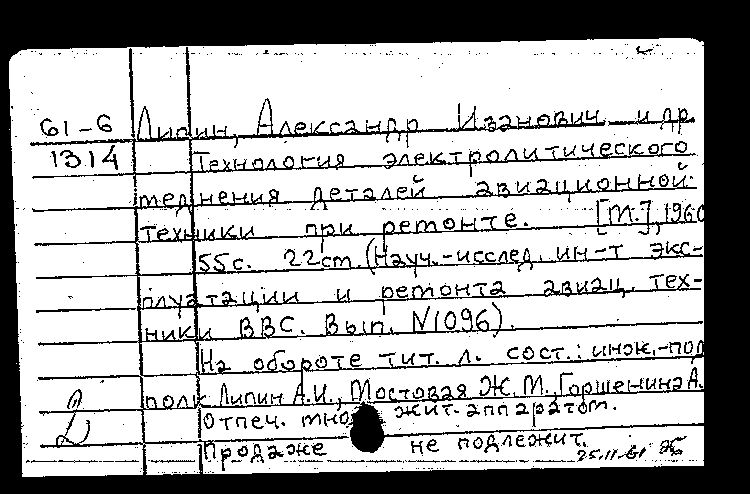 61-6 Липин, Александр Иванович и др.
1314 Технология электролитического
меднения деталей авиационной
техники при ремонте. [М.], 1960
55с. 22см. (Науч.-исслед. ин-т экс-
плуатации и ремонта авиац. тех-
ники ВВС. Вып. N1096).
На обороте тит. л. сост.: инж.-под
полк Липин А.И., Мостовая Ж.М., Горшенина А.
2 Отпеч. мно жит. аппаратом.
Продаже не подлежит.
25.11.61